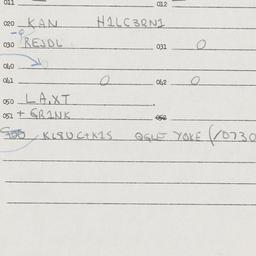 011 012
020 KAN H1LC3RN1
030 REJDL 031 0
040
041 0 042 0
050 LA,XT
051 + GR1NK 052
KL8UC+K1S QGLE YOKE (10730